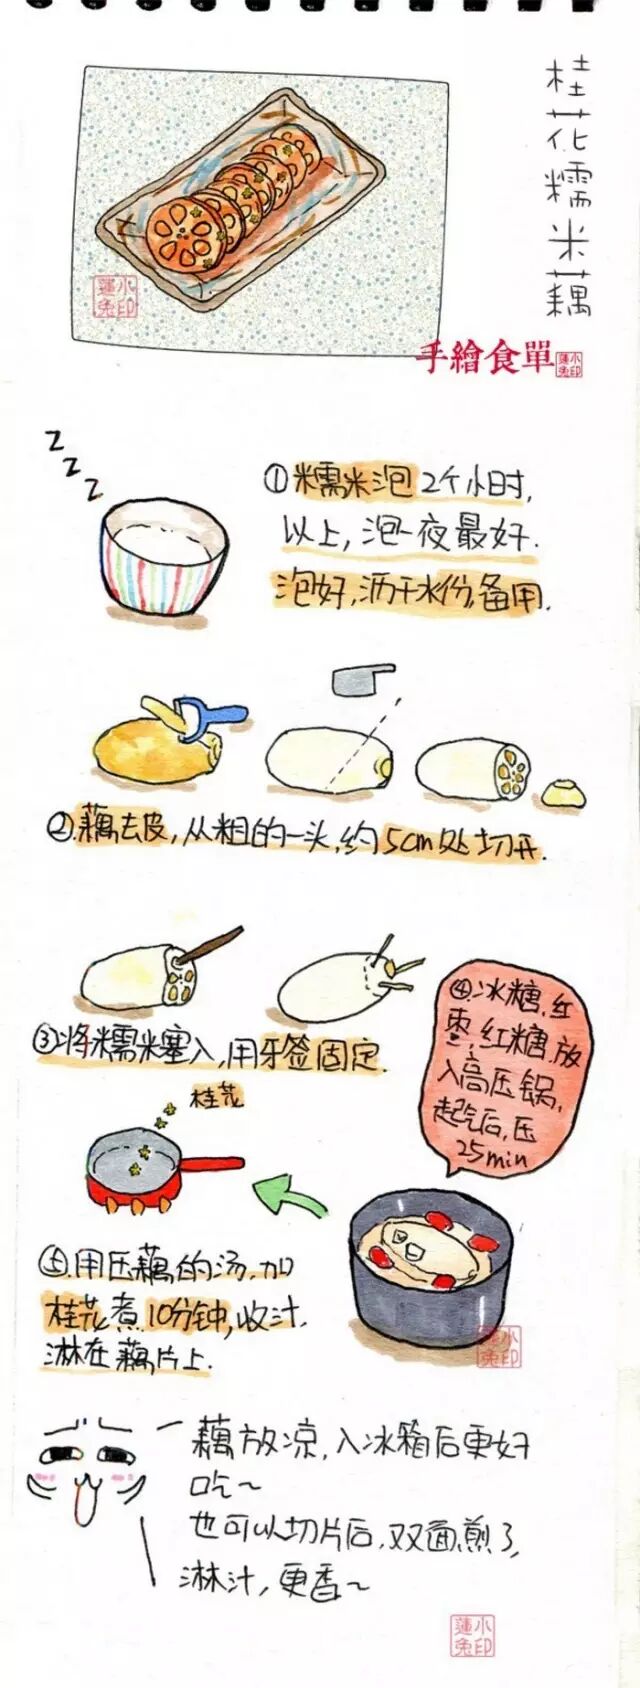 桂花糯米藕
手繪食單
小印
蓮兔
小印
蓮兔
Z
Z
Z
①糯米泡2个小时,
以上,泡一夜最好.
泡好,沥干水份,备用.
②.藕去皮,从粗的一头,约5cm处切开.
③.将糯米塞入,用牙签固定.
④.冰糖,红
枣,红糖,放
入高压锅,
起气后,压
25min
桂花
⑤.用压藕的汤,加
桂花煮10分钟,收汁.
淋在藕片上.
小印
蓮兔
藕放凉,入冰箱后更好
吃~
也可以切片后,双面煎了,
淋汁,更香~
小印
蓮兔